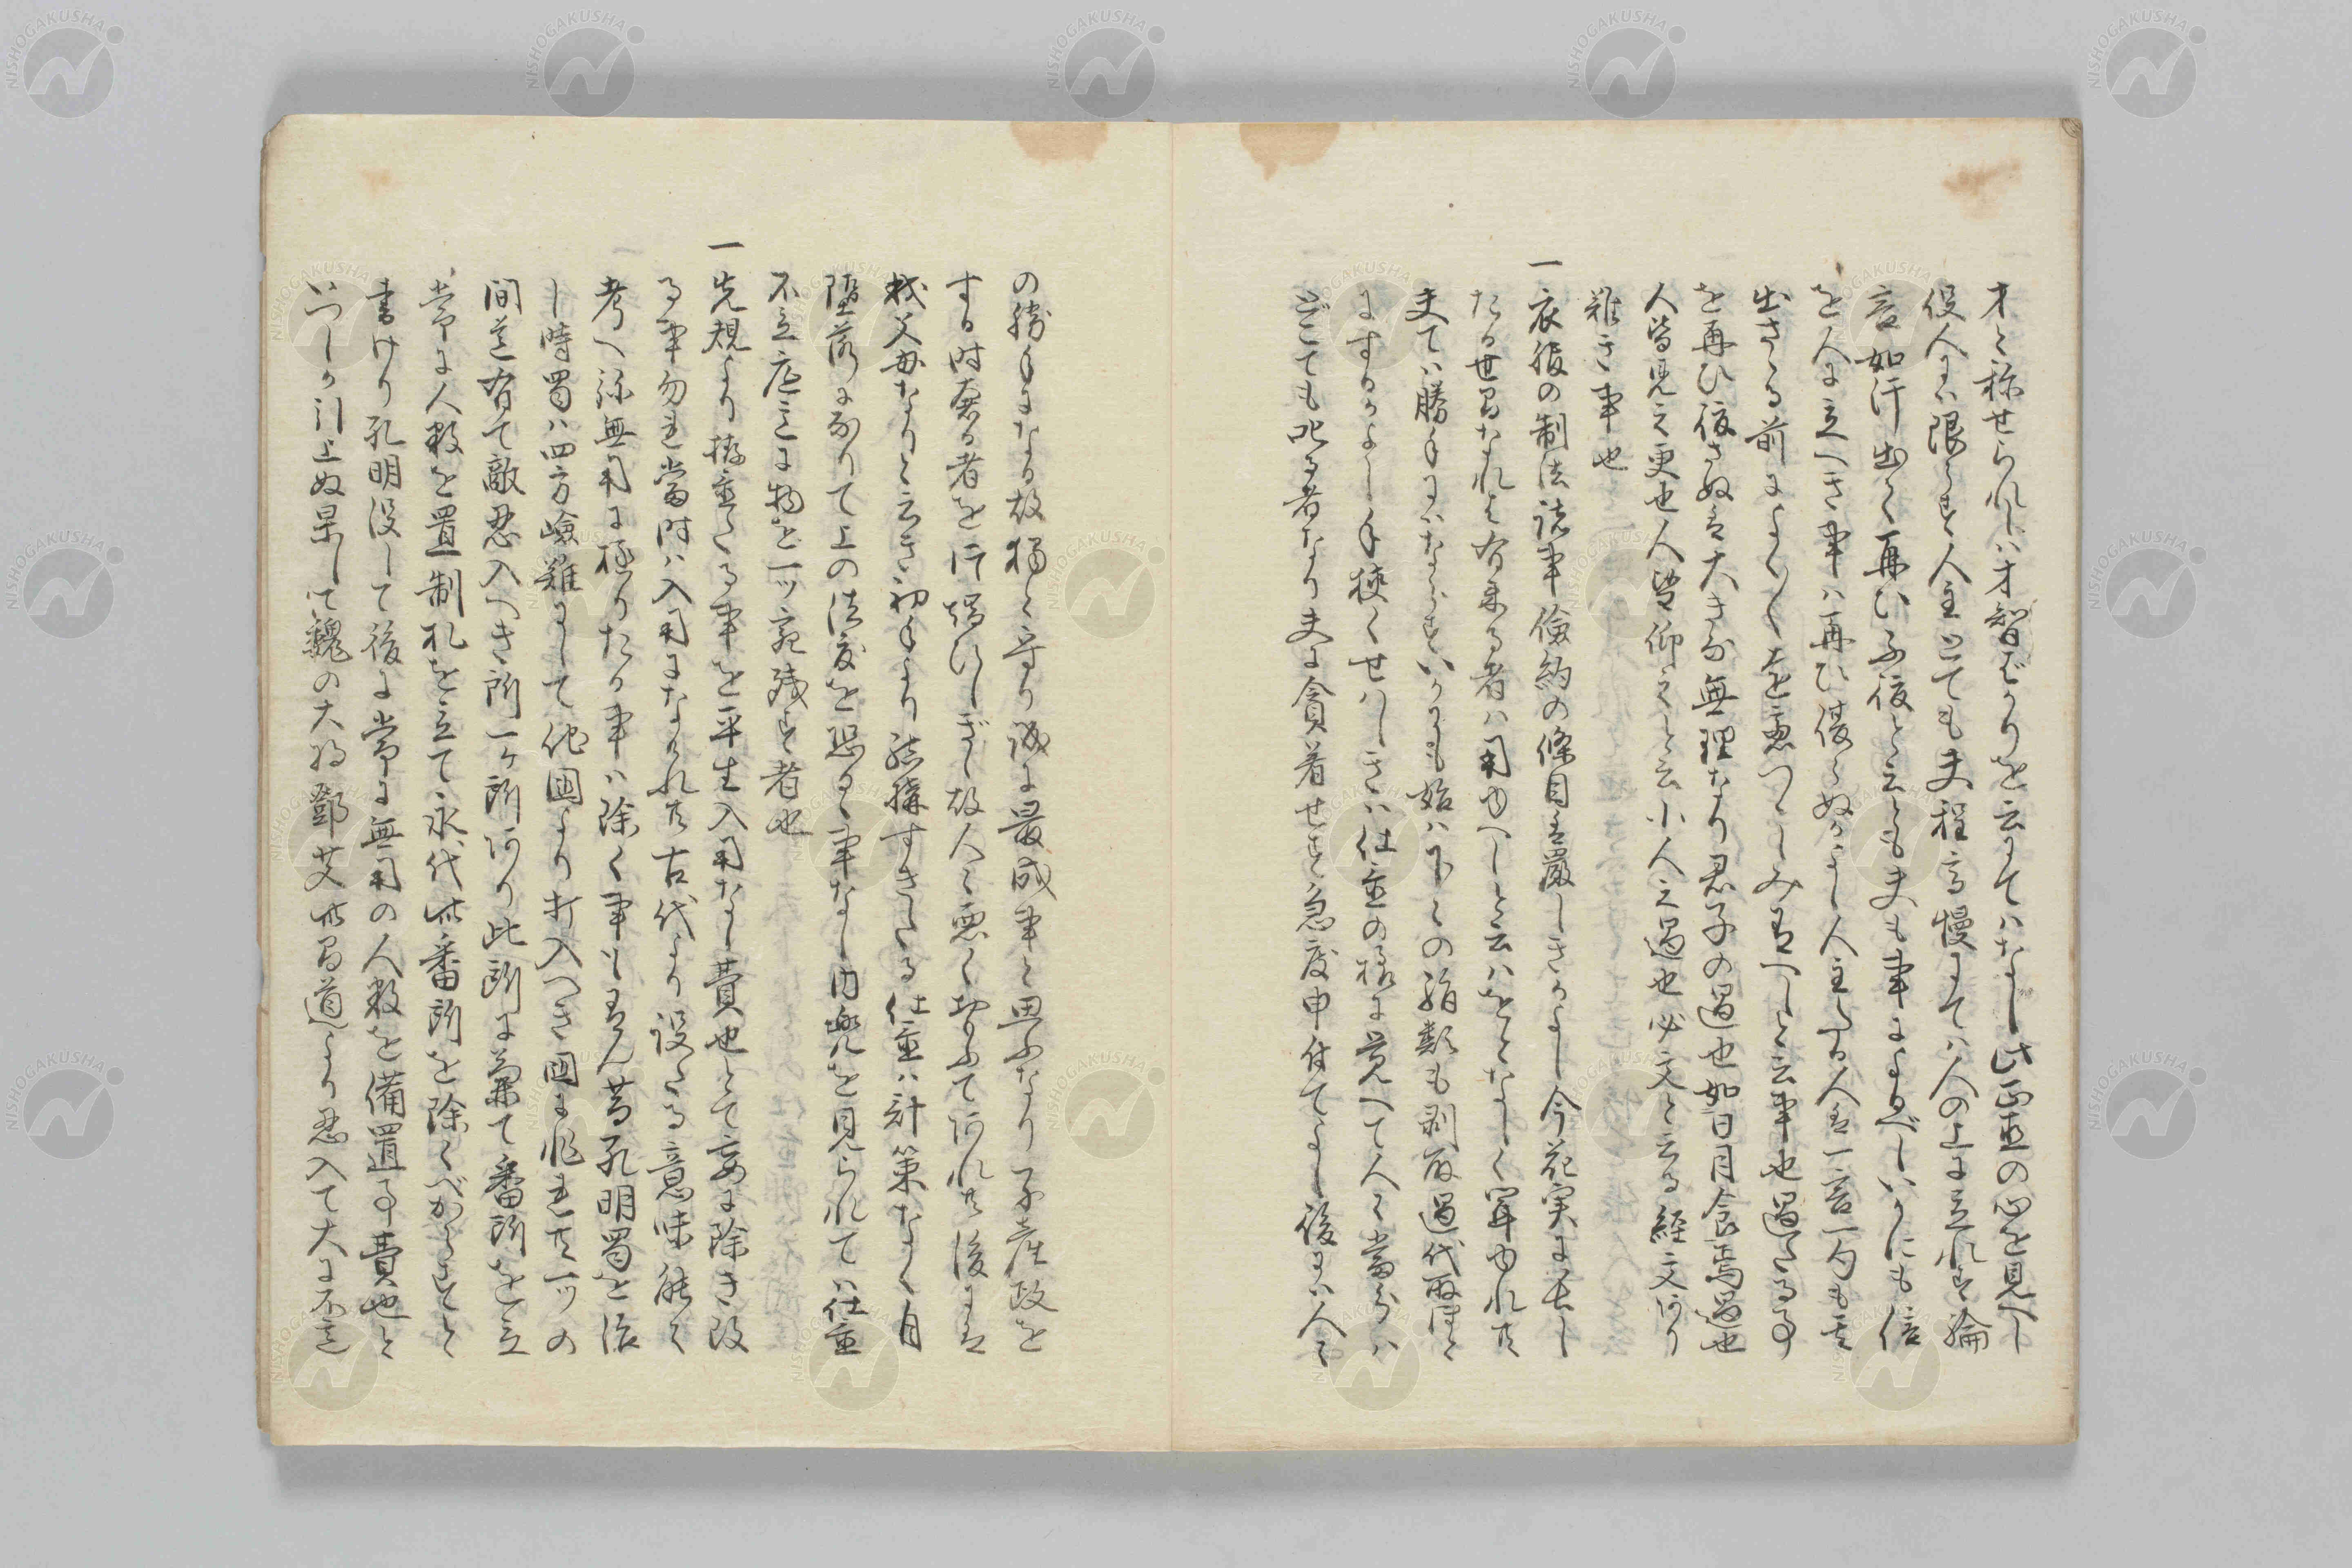 才と称せられしは才智ばかりを云にてはなし此正直の心を見へし
役人には限らす人主とても夫程高慢にては人の上に立れす綸
言如汗出て再ひ不復と云とも夫も事によるべしいかにも信
を人に立へき事は再ひ復らぬかよし人主たる人は一言一句も其
出さゝる前によく〳〵夫を慮つゝしみ有へしと云事也過たる事
を再ひ復さぬは大きな無理なり君子の過也如日月食焉過也
人皆見之更也人皆仰之と云小人之過也必文と云る経文あり
難き事也
一衣服の制法諸事倹約の條目は厳しきかよし今花実に長し
たる世界なれは有来る者は用ゆへしと云はをとなしく聞ゆれ共
夫ては勝手にはならすいかにも始は下々の絹類も剥取過代取ほと
にするかよし手狭くせはしきは仕置の様に覚へて人々当分は
どこても叱る者なり夫に貪着せす急度申付てよし後には人々
の勝手になる故獨と守り誠に最成事と思ふなり子産政を
する時奢る者を片端ひしぎし故人々悪く思ふてあれ共後には
我父母なりと云き初手より結構すきたる仕置は計策なく自
堕落になりて上の法度を恐るゝ事なし内兜を見られては仕置
不立庭に物を一ッ宛残す者也
一先規より掛置たる事を平生入用なし費也とて妄に除き改
る事勿れ当時は入用になけれ共古代より設たる意味能々
考へ弥無用に極りたる事は除く事も有ん昔孔明蜀を治
し時蜀は四方嶮難にして他国より打入へき国に非れ共一ッの
間道有て敵忍入へき所一ヶ所あり此所に兼て番所を立
常に人数を置制札を立て永代此番所を除くべからすと
書けり孔明没して後に常に無用の人数を備置事費也と
いつしか引上ぬ果して魏の大将鄧艾此間道より忍入て大に不意